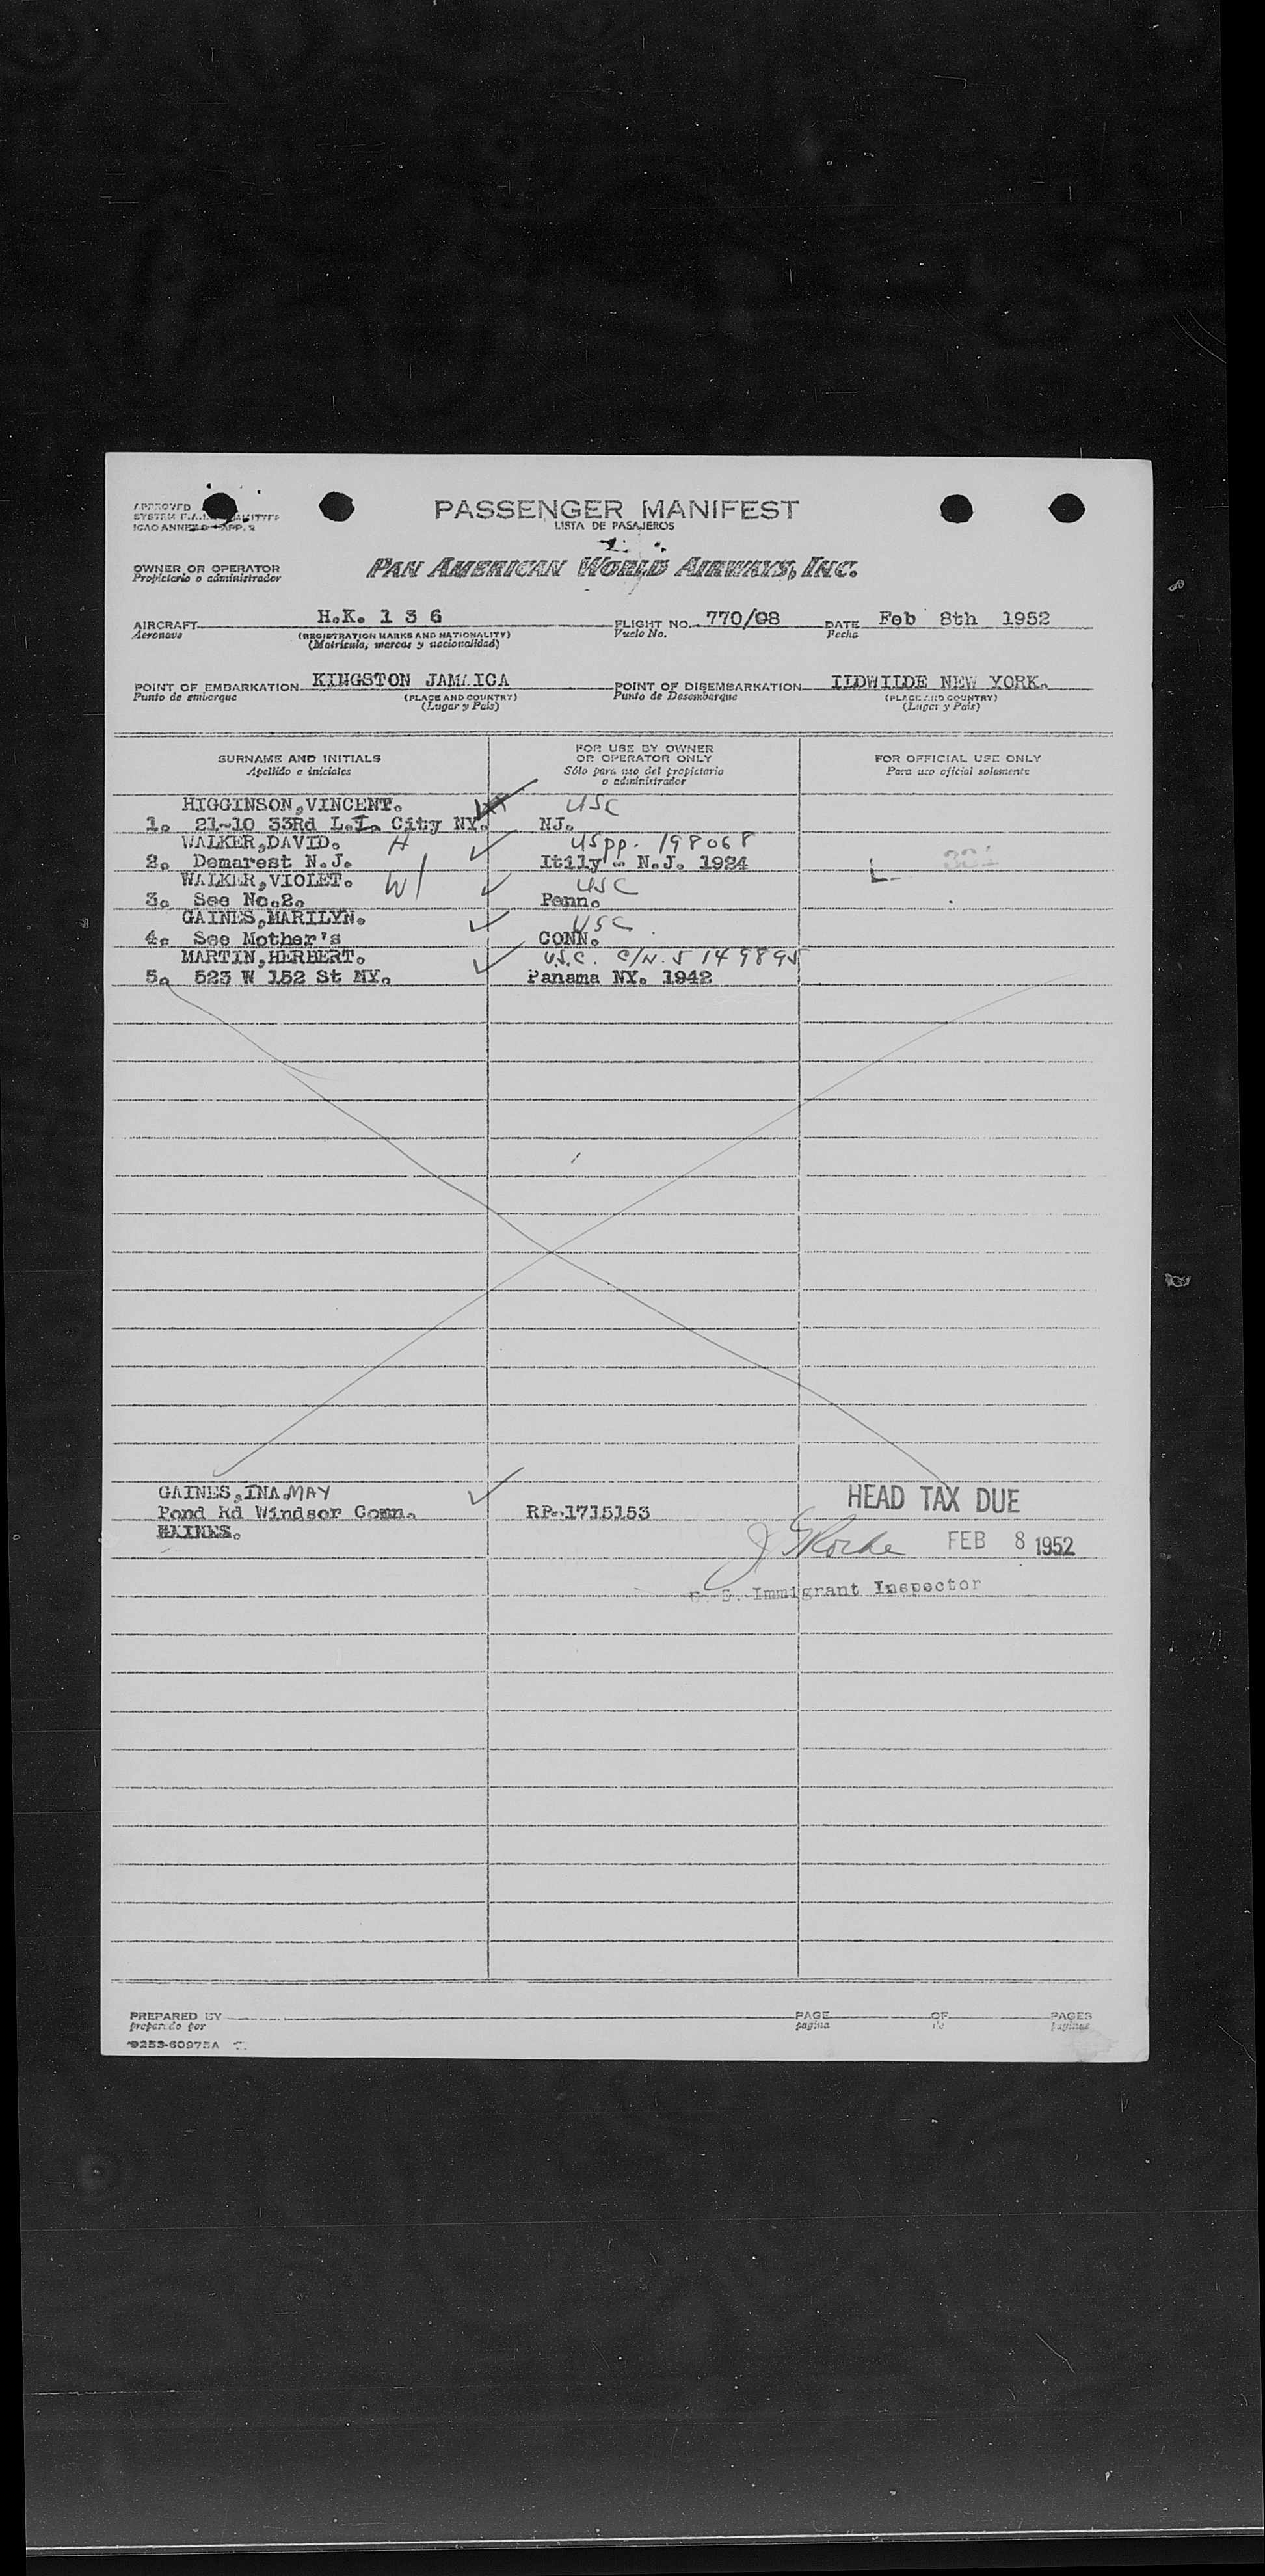 APPROVED
ICAO ANNEX 9 APP. 2
PASSENGER MANIFEST
LISTA DE PASAJEROS
OWNER OR OPERATOR
Propietario o administrador
PAN AMERICAN WORLD AIRWAYS, INC.
AIRCRAFT H.K. 1 3 6 FLIGHT NO. 770/08 DATE Feb 8th 1952
Aeronave (REGISTRATION MARKS AND NATIONALITY) Vuelo No. Fecha
(Matrícula, marcas y nacionalidad)
POINT OF EMBARKATION KINGSTON JAMAICA POINT OF DISEMBARKATION ILDWILDE NEW YORK.
Punto de embarque (PLACE AND COUNTRY) Punto de Desembarque (PLACE AND COUNTRY)
(Lugar y País) (Lugar y País)
SURNAME AND INITIALS FOR USE BY OWNER OR OPERATOR ONLY FOR OFFICIAL USE ONLY
Apellido e iniciales Sólo para uso del propietario o administrador Para uso oficial solamente
HIGGINSON,VINCENT. USC
1. 21-10 33Rd L.I. City NY. NJ.
WALKER,DAVID. H USpp. 198068
2. Demarest N.J. Itily - N.J. 1924
WALKER,VIOLET. W/ USC
3. See No.2. Penn.
GAINES,MARILYN. USC
4. See Mother's CONN.
MARTIN,HERBERT. U.S.C. C/N. 5149895
5. 523 W 152 St NY. Panama NY. 1942
GAINES,INA.MAY
Pond Rd Windsor Conn. RP.1715153
HEAD TAX DUE
HAINES.
FEB 8 1952
U. S. Immigrant Inspector
PREPARED BY PAGE OF PAGES
preparado por pagina de paginas
9253-60975A